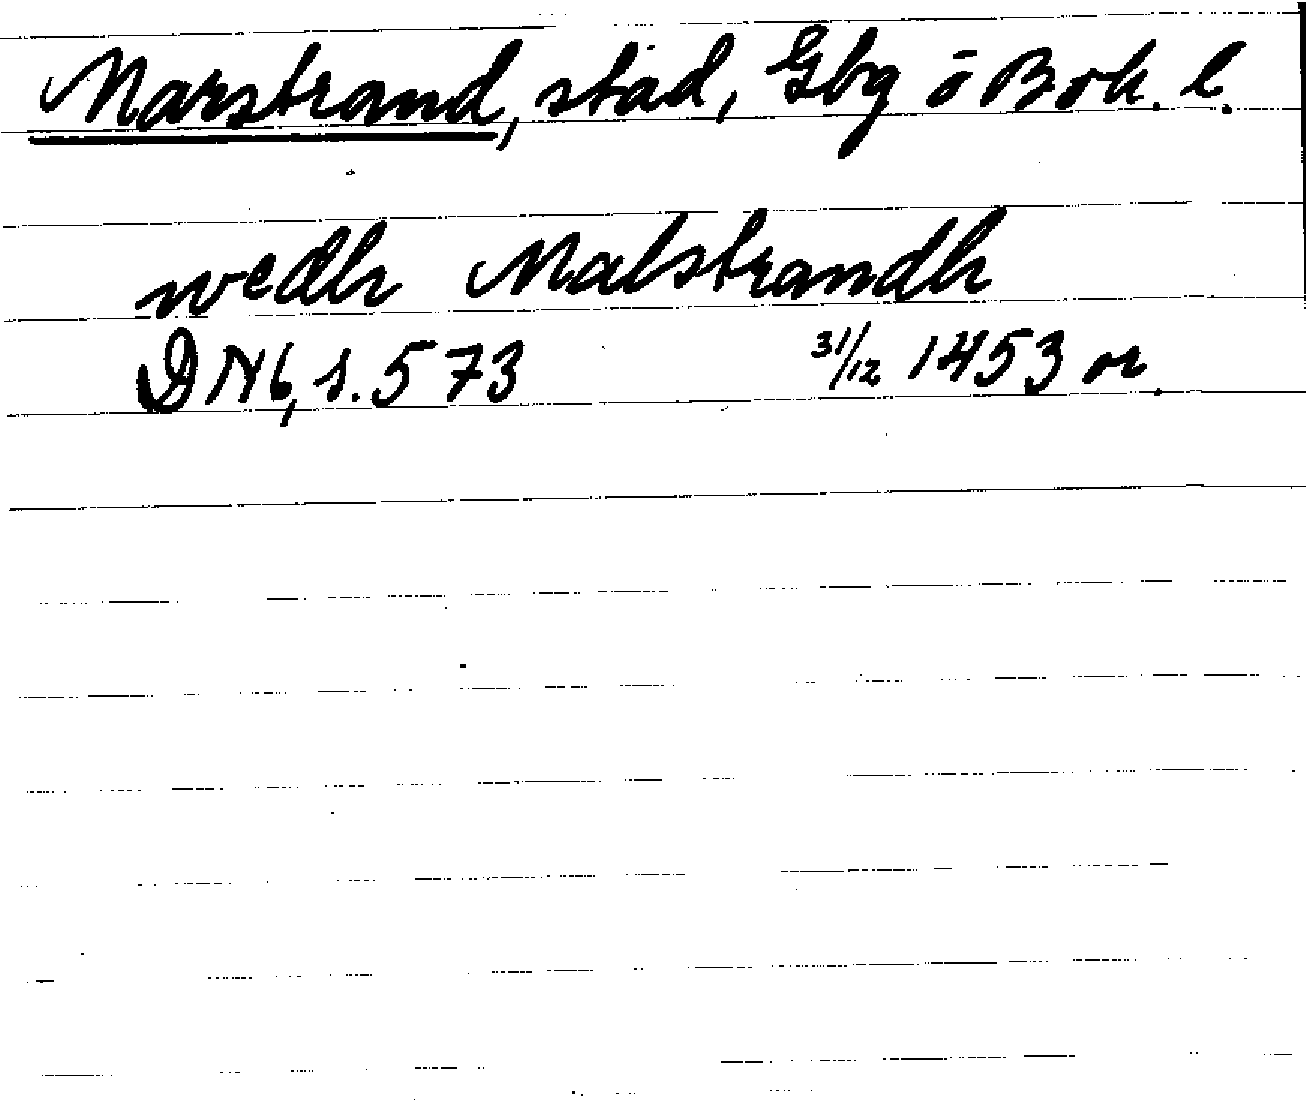 Marstrand, stad, Gbg o Boh. l.
wedh Malstrandh
DN 6, s. 573 31/12 1453 or.